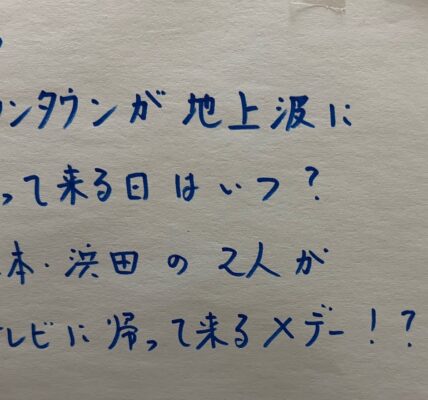 ウンタウンが地上波に
って来る日はいつ？
本・浜田の2人が
レビに帰って来るXデー！？